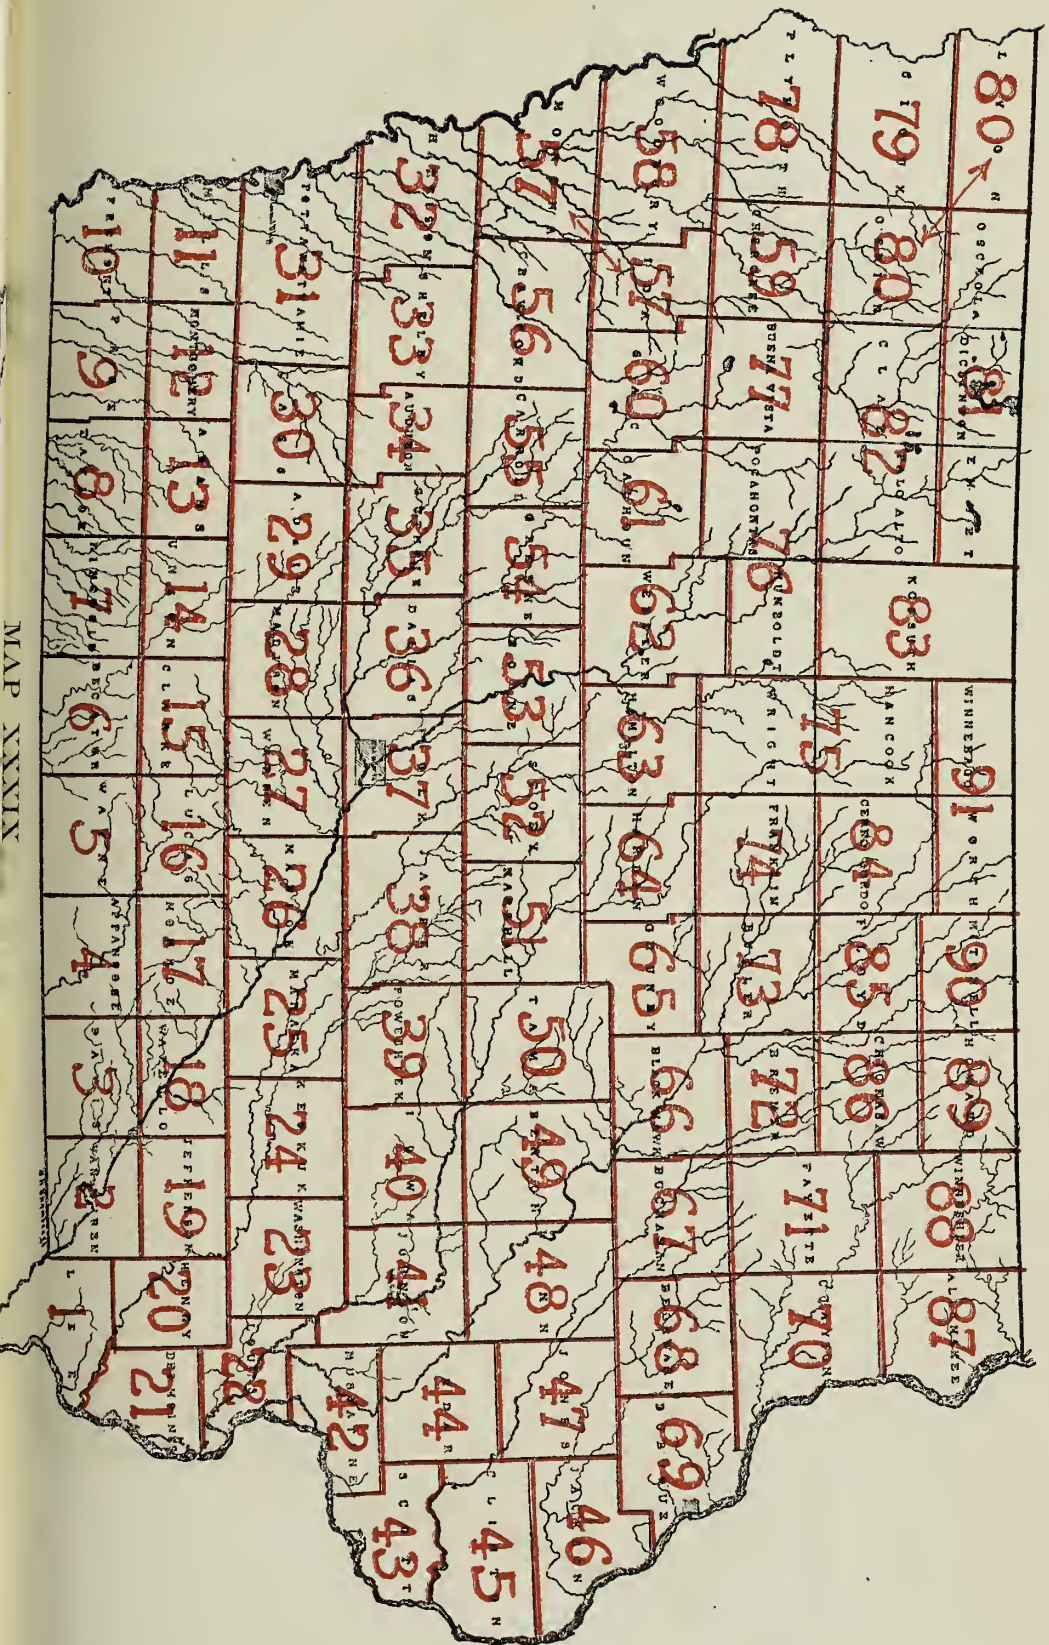 80
LYON
OSCEOLA
81
DICKINSON
EMMET
KOSSUTH
83
WINNEBAGO
91
WORTH
MITCHELL
90
HOWARD
89
WINNESHIEK
88
ALLAMAKEE
87
79
SIOUX
80
OBRIEN
CLAY
82
PALO ALTO
HANCOCK
75
CERRO GORDO
84
FLOYD
85
CHICKASAW
86
78
PLYMOUTH
CHEROKEE
59
BUENA VISTA
77
POCAHONTAS
76
HUMBOLDT
WRIGHT
FRANKLIN
74
BUTLER
73
BREMER
72
FAYETTE
71
CLAYTON
70
WOODBURY
58
IDA
57
SAC
60
CALHOUN
61
WEBSTER
62
HAMILTON
63
HARDIN
64
GRUNDY
65
BLACKHAWK
66
BUCHANAN
67
DELAWARE
68
DUBUQUE
69
57
CRAWFORD
56
CARROLL
55
GREENE
54
BOONE
53
STORY
52
MARSHALL
51
TAMA
50
BENTON
49
LINN
48
JONES
47
JACKSON
46
HARRISON
32
SHELBY
33
AUDUBON
34
GUTHRIE
35
DALLAS
36
POLK
37
JASPER
38
POWESHIEK
39
IOWA
40
JOHNSON
41
CEDAR
44
CLINTON
45
SCOTT
43
31
CASS
30
ADAIR
29
MADISON
28
WARREN
27
MARION
26
MAHASKA
25
KEOKUK
24
WASHINGTON
23
LOUISA
22
MUSCATINE
42
MILLS
11
MONTGOMERY
12
ADAMS
13
UNION
14
CLARKE
15
LUCAS
16
MONROE
17
WAPELLO
18
JEFFERSON
19
HENRY
20
DES MOINES
21
FREMONT
10
PAGE
9
8
RINGGOLD
7
DECATUR
6
WAYNE
5
4
DAVIS
3
VAN BUREN
2
LEE
1
MAP XXXIX